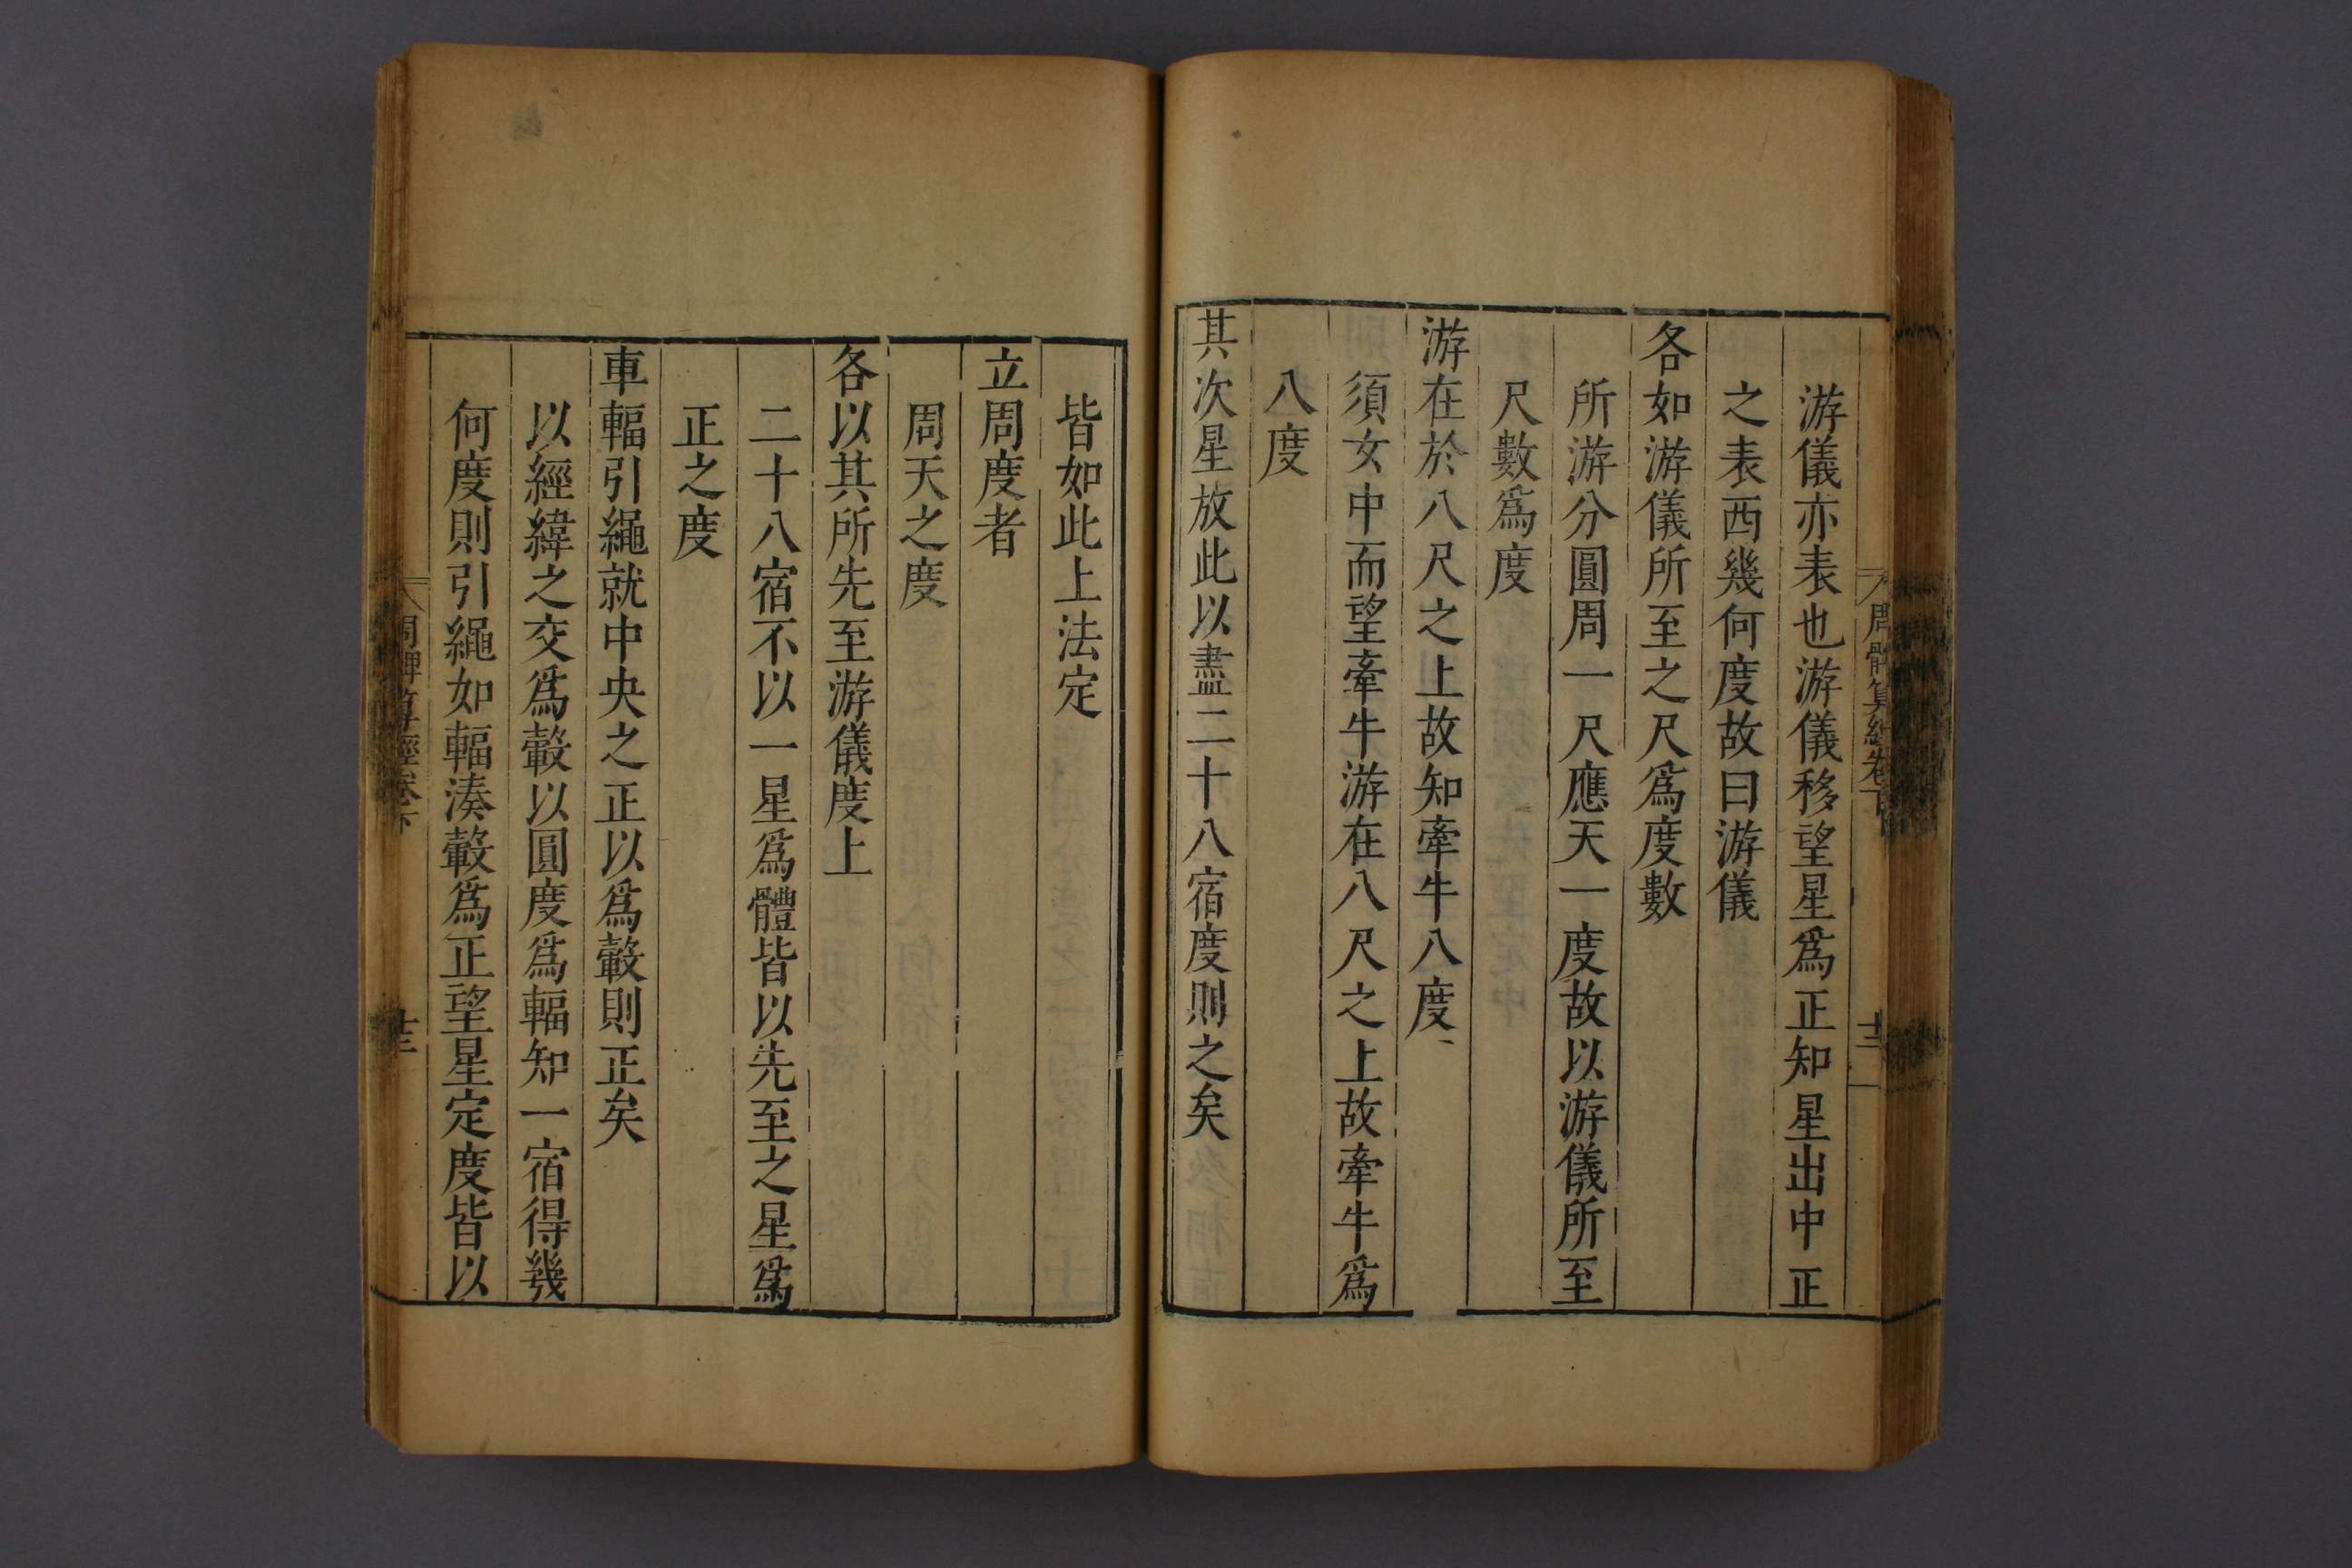 游儀亦表也游儀移望星爲正知星出中正
之表西幾何度故曰游儀
各如游儀所至之尺爲度數
所游分圓周一尺應天一度故以游儀所至
尺數爲度
游在於八尺之上故知牽牛八度
須女中而望牽牛游在八尺之上故牽牛爲
八度
其次星放此以盡二十八宿度則之矣
皆如此上法定
立周度者
周天之度
各以其所先至游儀度上
二十八宿不以一星爲體皆以先至之星爲
正之度
車輻引繩就中央之正以爲轂則正矣
以經緯之交爲轂以圓度爲輻知一宿得幾
何度則引繩如輻湊轂爲正望星定度皆以
周髀算經卷下